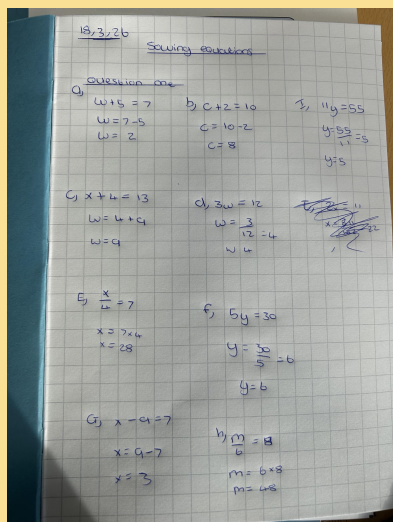 18,3,26
Solving equations
question one
a, w+5 = 7
w = 7-5
w = 2
b, c+2 = 10
c = 10-2
c = 8
I, 11y = 55
y = 55/11 = 5
y = 5
C, x+4 = 13
w = 4+9
w = 9
d, 3w = 12
w = 3/12 = 4
w 4
E, x/4 = 7
x = 7x4
x = 28
f, 5y = 30
y = 30/5 = 6
y = 6
G, x - 9 = 7
x = 9-7
x = 3
h, m/6 = 8
m = 6x8
m = 48